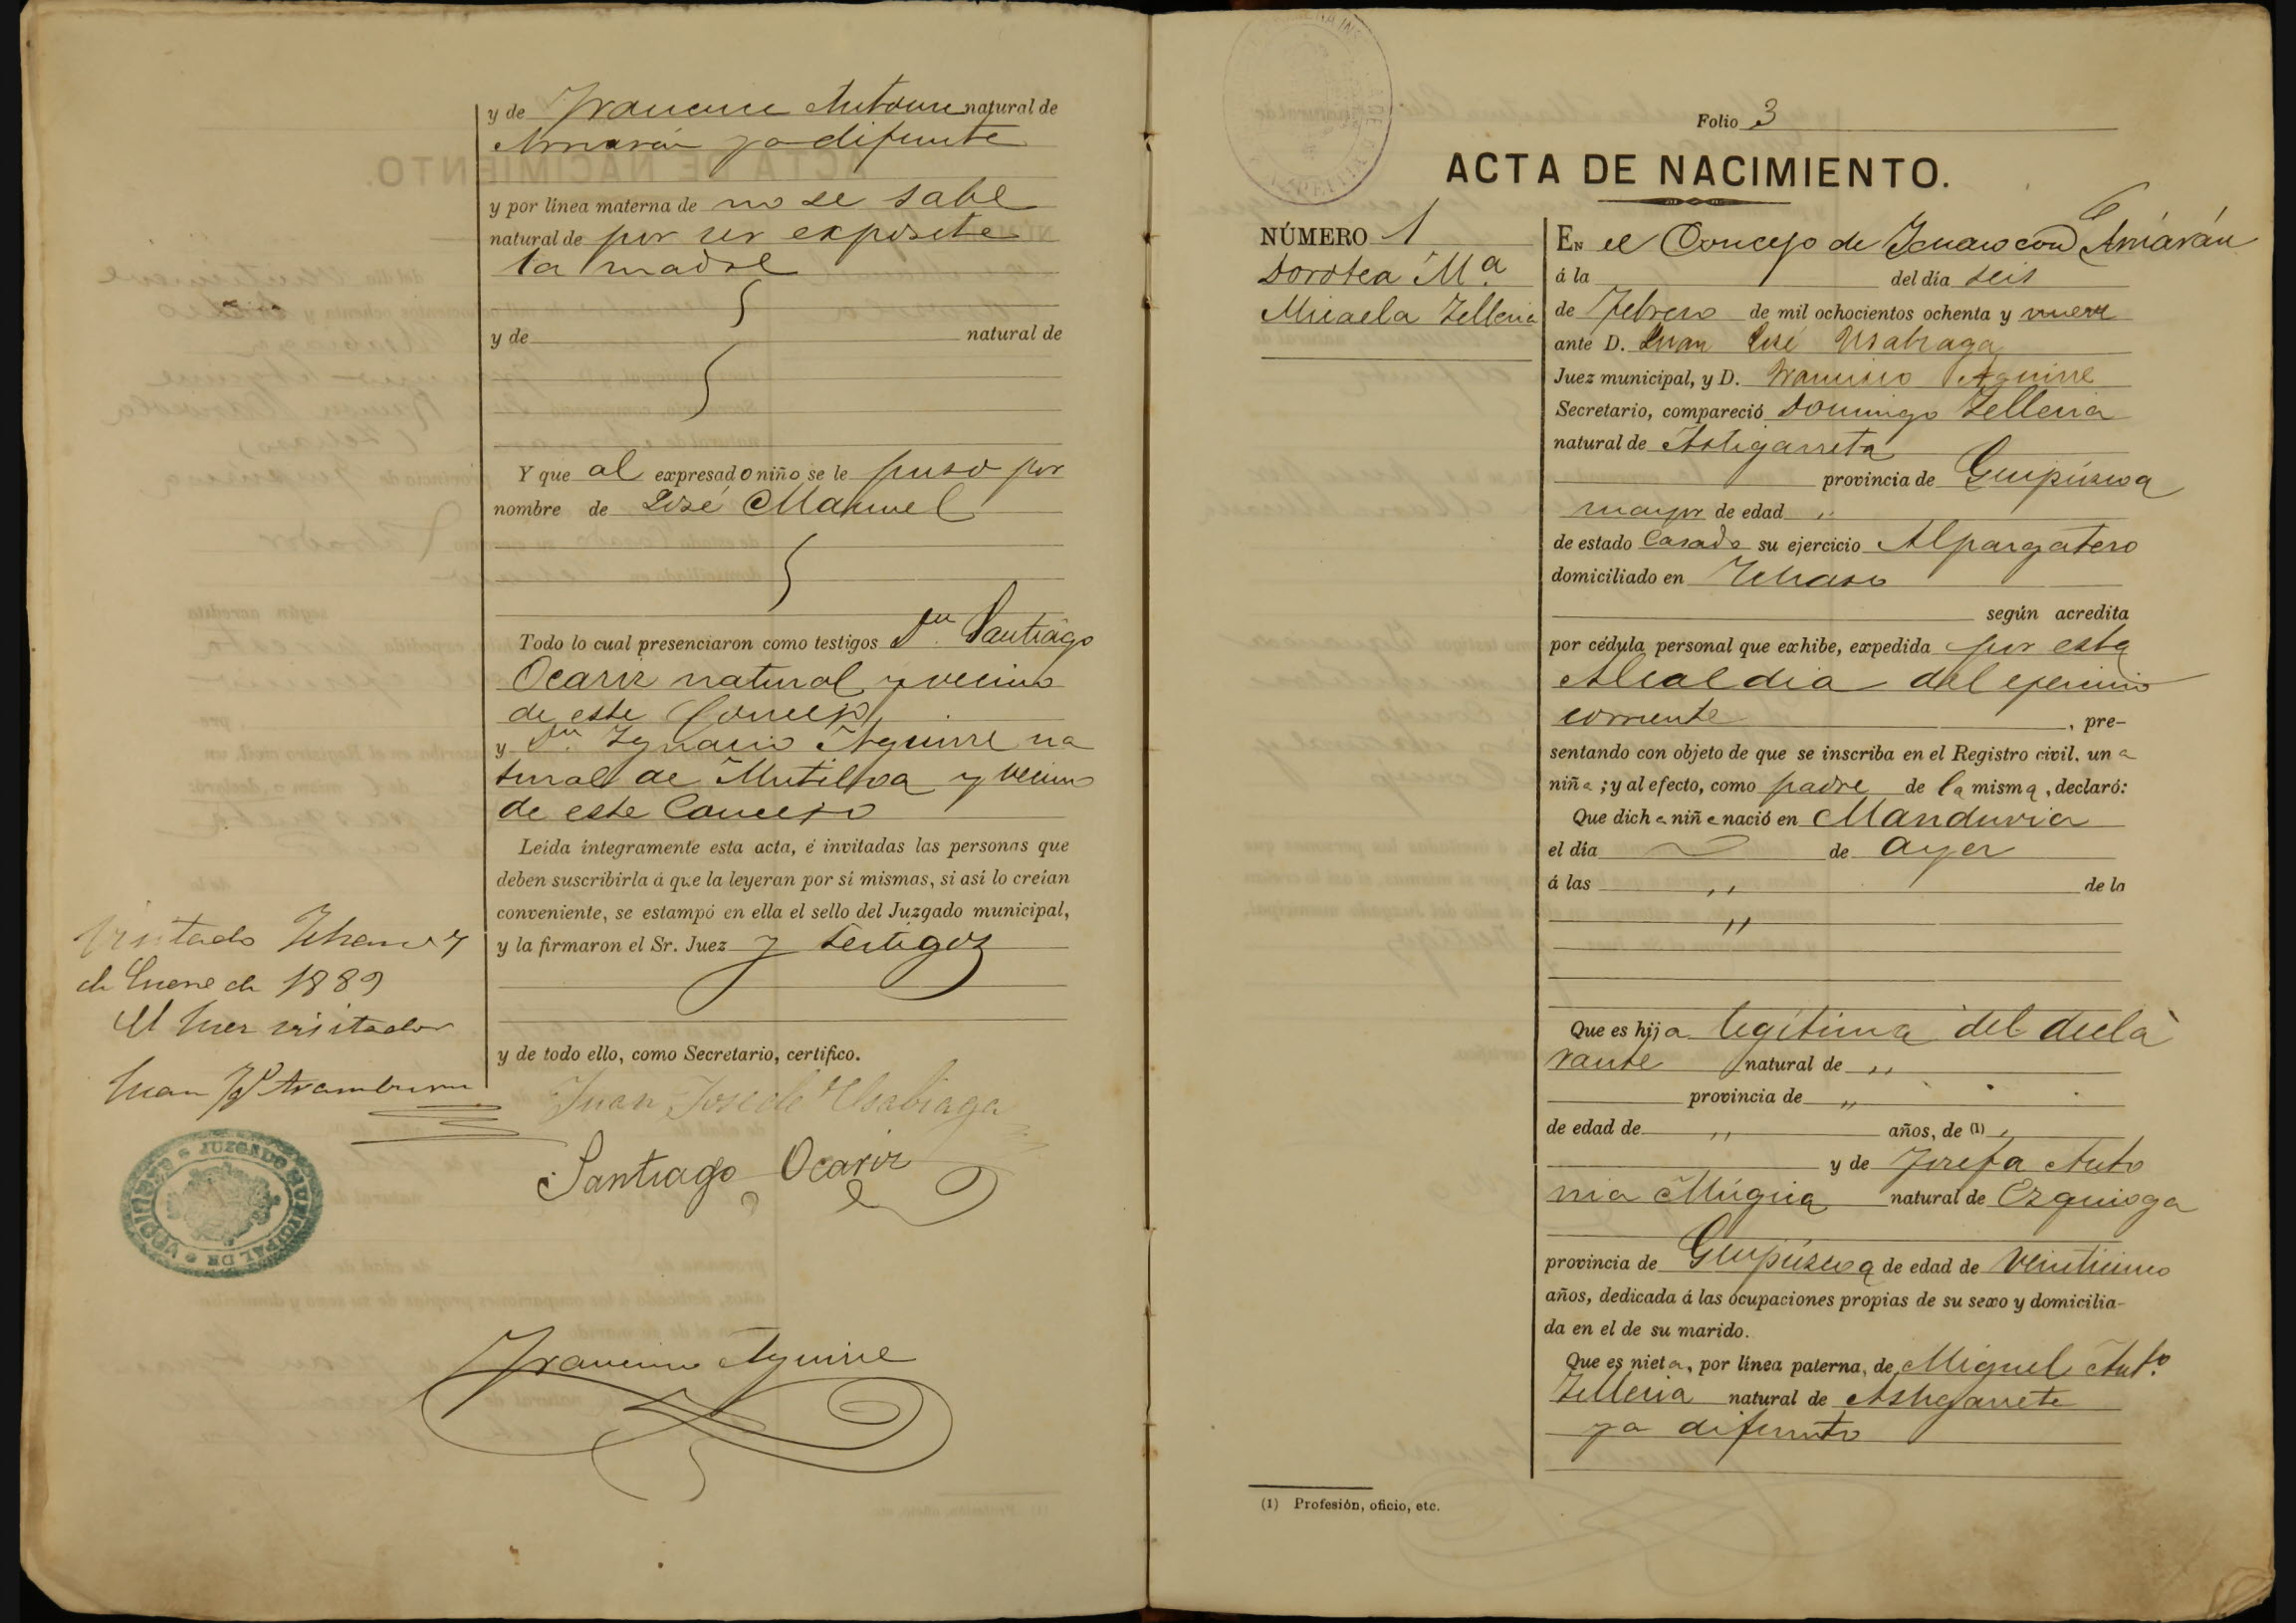 y de Francisca Antonia natural de
Arriarán ya difunta
y por línea materna de no se sabe
natural de por ser exposita
la madre
y de natural de
Y que al expresado niño se le puso por
nombre de José Manuel
Todo lo cual presenciaron como testigos Dn. Santiago
Ocariz natural y vecino
de este Concejo
y Dn. Ygnacio Aguirre na
tural de Mutiloa y vecino
de este Concejo
Leída íntegramente esta acta, é invitadas las personas que
deben suscribirla á que la leyeran por sí mismas, si así lo creían
conveniente, se estampó en ella el sello del Juzgado municipal,
y la firmaron el Sr. Juez y testigos
y de todo ello, como Secretario, certifico.
Juan José de Usabiaga
Santiago Ocariz
Francisco Aguirre
Visitado Ichaso 7
de Enero de 1889
El Juez visitador
Juan Aramburu
JUZGADO MUNICIPAL DE
Folio 3
ACTA DE NACIMIENTO.
NÚMERO 1
Dorotea Mª.
Micaela Telleria
EN el Concejo de Ichaso con Arriarán
á la del día seis
de Febrero de mil ochocientos ochenta y nueve
ante D. Juan José Usabiaga
Juez municipal, y D. Francisco Aguirre
Secretario, compareció Domingo Telleria
natural de Astigarreta
provincia de Guipúzcoa
mayor de edad "
de estado Casado su ejercicio Alpargatero
domiciliado en Ichaso
según acredita
por cédula personal que exhibe, expedida por esta
Alcaldia del ejercicio
corriente, pre-
sentando con objeto de que se inscriba en el Registro civil, una
niña; y al efecto, como padre de la misma, declaró:
Que dicha niña nació en Manduvia
el día de ayer
á las " de la
"
Que es hija legítima del decla
rante natural de "
provincia de "
de edad de " años, de (1) "
y de Josefa Anto
nia Múgica natural de Ezquioga
provincia de Guipúzcoa de edad de veinticinco
años, dedicada á las ocupaciones propias de su sexo y domicilia-
da en el de su marido.
Que es nieta, por línea paterna, de Miguel Antº.
Telleria natural de Astigarreta
ya difunto
(1) Profesión, oficio, etc.